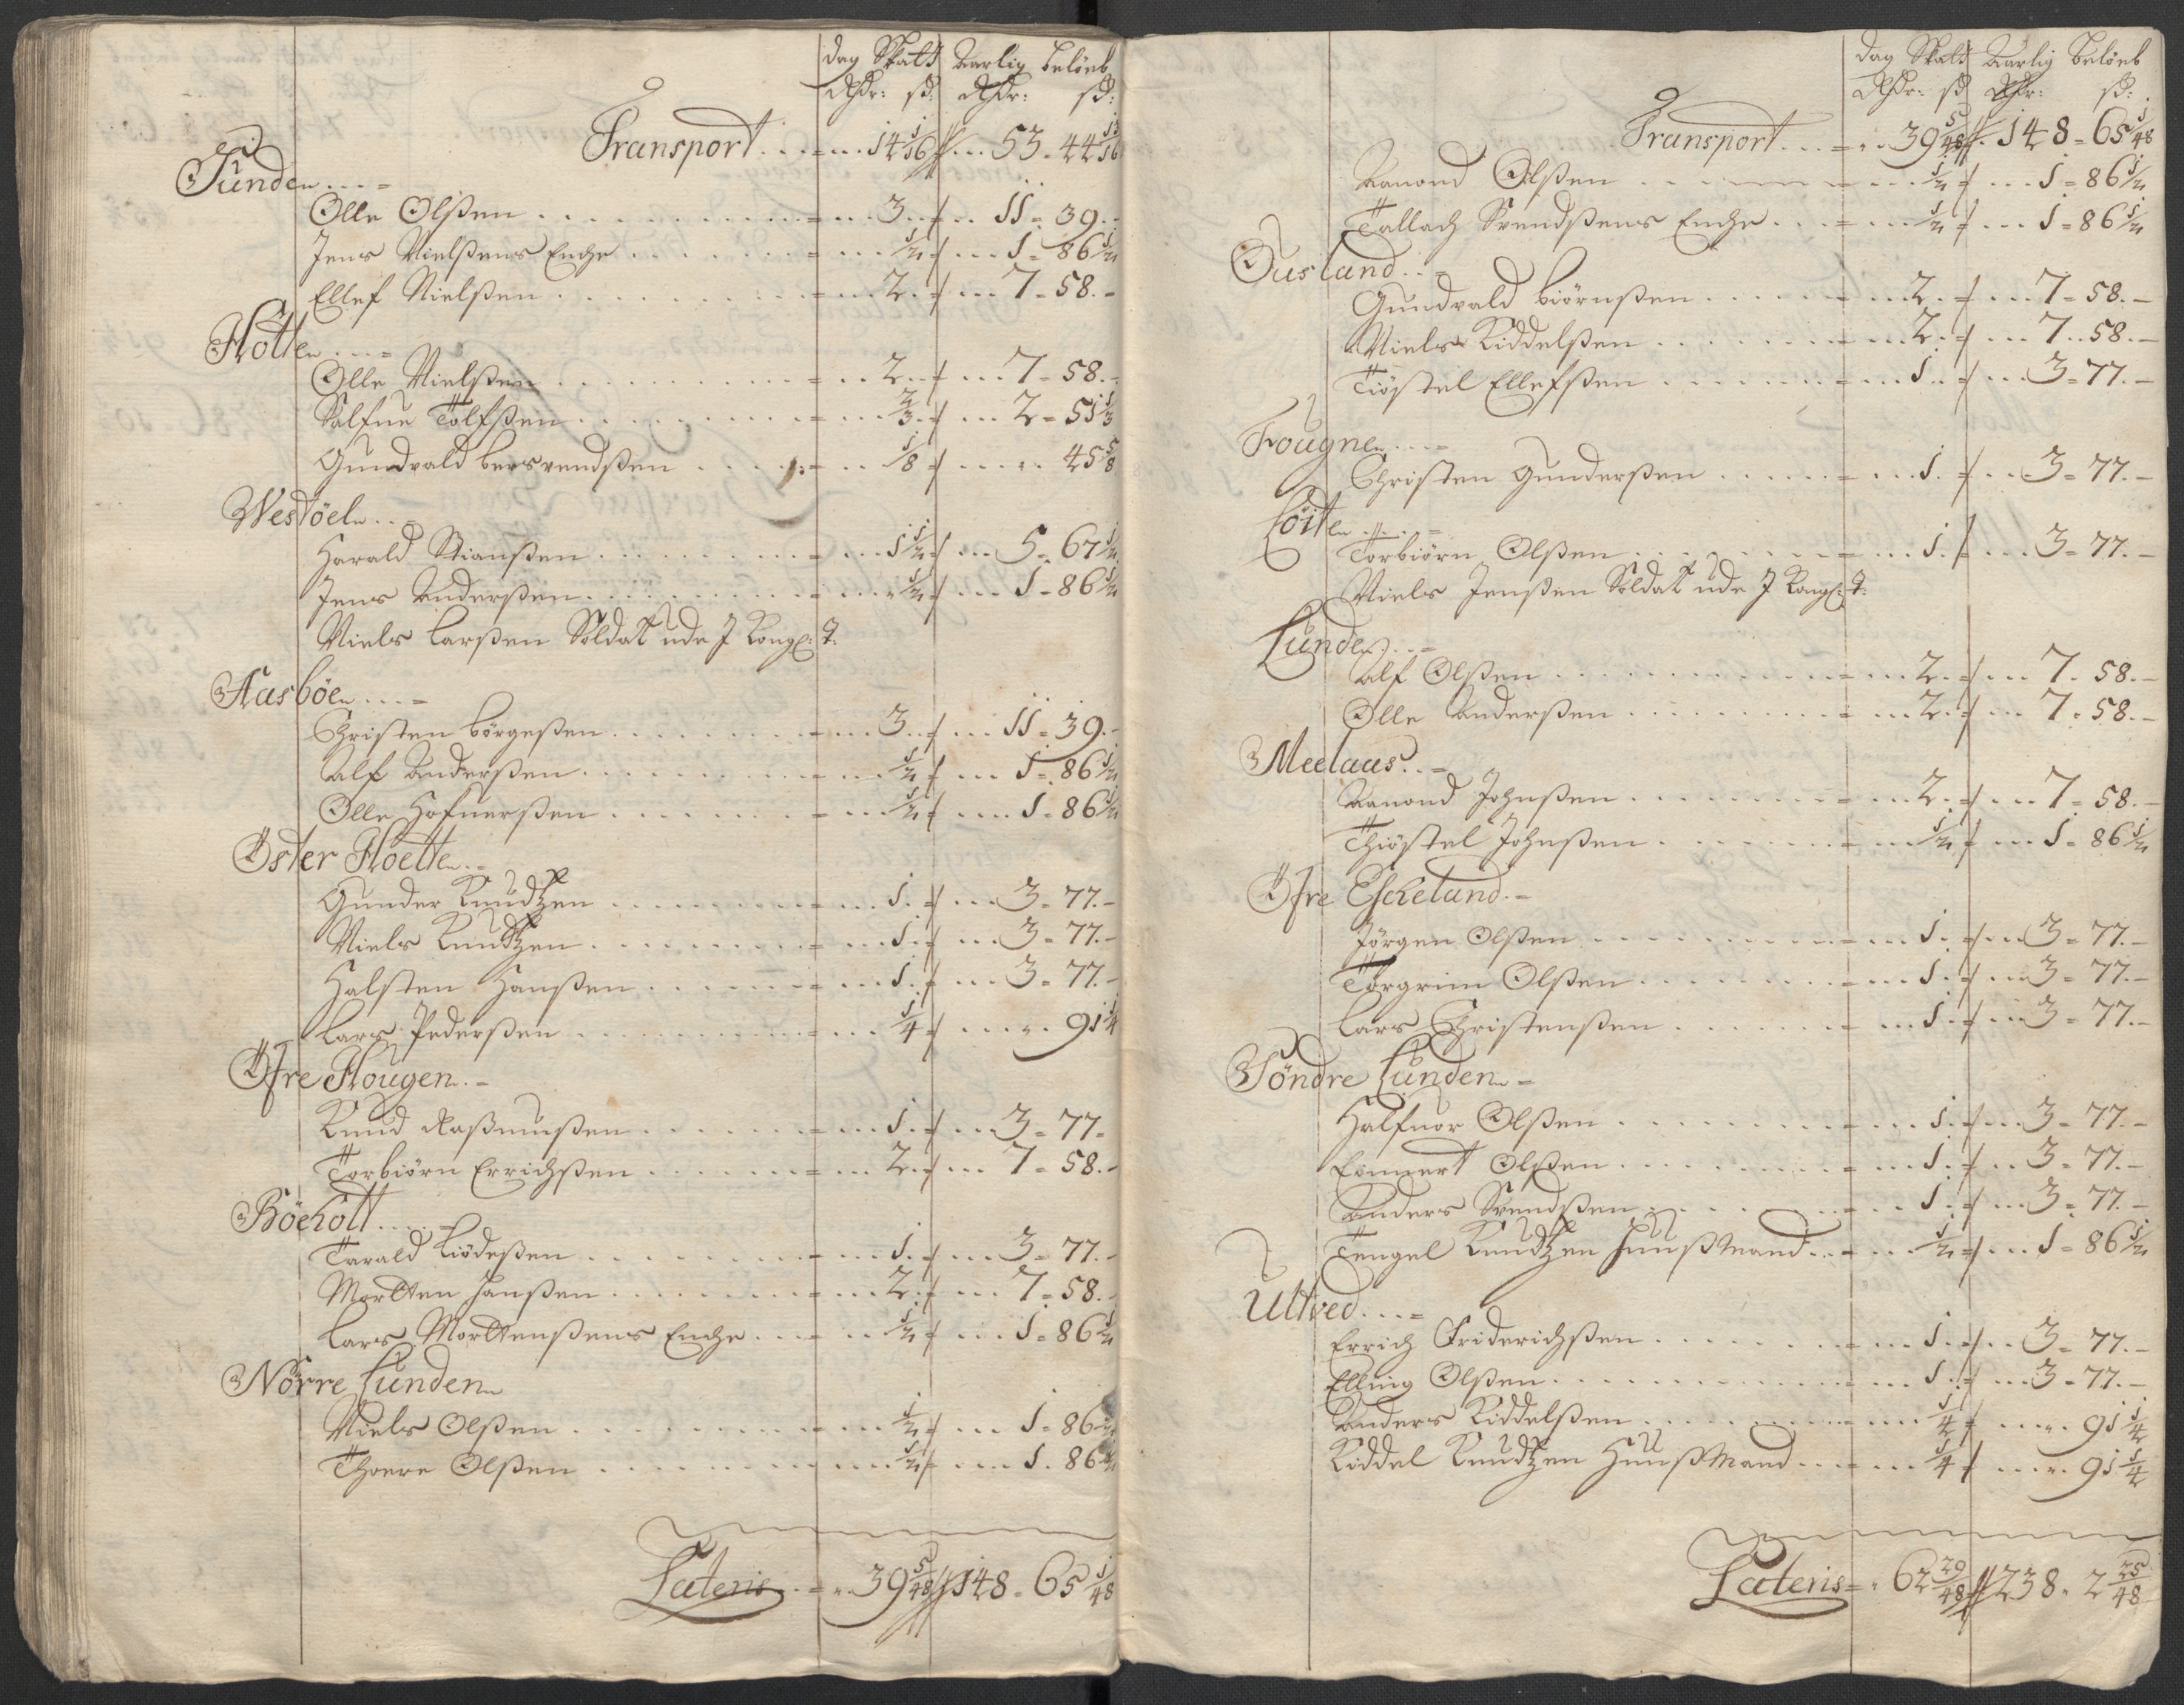 dag Skatt Aarlig beløeb
Rdr: ß: Rdr: ß:
Transport . . . 14 1/16 . . . 53 = 44 13/16
Sünden . . . =
Olle Olßen . . . 3 . . . 11 = 39 . -
Jens Nielßens Enche . . . 1/2 . . . 1 = 86 1/2
Ellef Nielßen . . . 2 . . . 7 = 58 . -
Hotten . . . =
Olle Nielßen . . . 2 . . . 7 = 58 . -
Salfue Tolfsen . . . 2/3 . . . 2 = 51 1/3
Gundvald bersvendßen . . . 1/8 . . . 45 5/8
Westöeln . . =
Harald Stianßen . . . 1 1/2 . . . 5 = 67 1/2
Jens Anderßen . . . 1/2 . . . 1 = 86 1/2
Niels Larßen Soldat ude J Kongl: T:
Aasböen . . . =
Christen börgeßen . . . 3 . . . 11 = 39 . -
Alf Anderßen . . . 1/2 . . . 1 = 86 1/2
Olle Hofuerßen . . . 1/2 . . . 1 = 86 1/2
Öster Hoetten . =
Gunder Knudtzen . . . 1 . . . 3 = 77 . -
Niels Knudtzen . . . 1 . . . 3 = 77 . -
Halsten Hanßen . . . 1 . . . 3 = 77 . -
Lars Pederßen . . . 1/4 . . . 91 1/4
Öfre Hougen . =
Knud Raßmußen . . . 1 . . . 3 = 77 =
Torbiörn Errichßen . . . 2 . . . 7 = 58 . -
Böeholt . . . =
Tarald Liödeßen . . . 1 . . . 3 = 77 . -
Mortten Hanßen . . . 2 . . . 7 = 58 . -
Lars Morttenßens Enche . . . 1/2 . . . 1 = 86 1/2
Nörre Lunden
Niels Olßen . . . 1/2 . . . 1 = 86 1/2
Thoere Olßen . . . 1/2 . . . 1 . 86 1/2
Lateris . . = 39 5/48 148 = 65 1/48
dag Skatt Aarlig beløeb
Rdr: ß Rdr: ß:
Transport . . . = 39 5/48 . 148 = 65 1/48
Aanond Olßen . . . 1/2 . . . 1 = 86 1/2
Tallach Svendßens Enche . . . 1/2 . . . 1 = 86 1/2
Ousland . . =
Gundvald biörnßen . . . 2 . . . 7 = 58 . -
Niels Kiddelßen . . . 2 . . . 7 . . 58 . -
Tiöstel Ellefsen . . . 1 . . . 3 = 77 . -
Fougnen . . . =
Christen Gunderßen . . . 1 . . . 3 = 77 . -
Löiten . . . =
Torbiörn Olßen . . . 1 . . . 3 = 77 . -
Niels Jenßen Soldat ude J Kongl: T:
Lunden . . =
Alf Olßen . . . 2 . . . 7 . 58 . -
Olle Anderßen . . . 2 . . . 7 . 58 . -
Meelaas . . =
Aanond Johnßen . . . 2 . . . 7 = 58 . -
Thiöstel Johnßen . . . 1/2 . . . 1 = 86 1/2
Öfre Escheland . =
Jörgen Olßen . . . 1 . . . 3 = 77 . -
Torgrim Olßen . . . 1 . . . 3 = 77 . -
Lars Christenßen . . . 1 . . . 3 = 77 . -
Söndre Lunden =
Halfuor Olßen . . . 1 . . . 3 = 77 . -
Emmert Olßen . . . 1 . . . 3 = 77 . -
Anders Svendßen . . . 1 . . . 3 = 77 . -
Tengel Knudtzen Huußmand . . . 1/2 . . . 1 = 86 1/2
Ultved . . . =
Errich Friderichßen . . . 1 . . . 3 = 77 . -
Elling Olßen . . . 1 . . . 3 = 77 . -
Anders Kiddelßen . . . 1/4 . . . 91 1/4
Kiddel Knudtzen Huußmand . . . 1/4 . . . 91 1/4
Lateris = 62 29/48 238 = 2 25/48